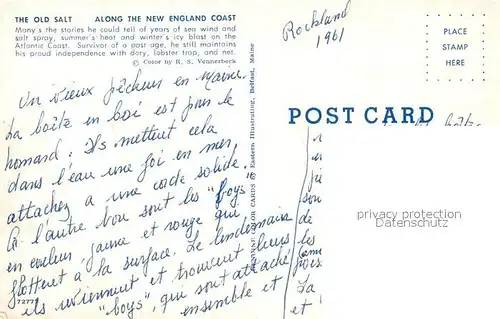 THE OLD SALT ALONG THE NEW ENGLAND COAST
Many's the stories he could tell of years of sea wind and
salt spray, summer's heat and winter's icy blast on the
Atlantic Coast. Survivor of a past age, he still maintains
his proud independence with dory, lobster trap, and net.
© Color by R. S. Vennerbeck
Rockland
1961
PLACE
STAMP
HERE
POST CARD
Un vieux pêcheur en Maine.
La boîte en boi est pour le
homard. Ils mettent cela
dans l'eau une foi en mer,
attachez a une corde solide.
À l'autre bou sont les "boys"
en couleur, jaune et rouge qui
flottent a la surface. Le lendemain
ils viennent et trouvent leurs
"boys", qui sont attaché
ensemble et
COLOR CARDS by Eastern Illustrating, Belfast, Maine
privacy protection
Datenschutz
son
de
les
La
et